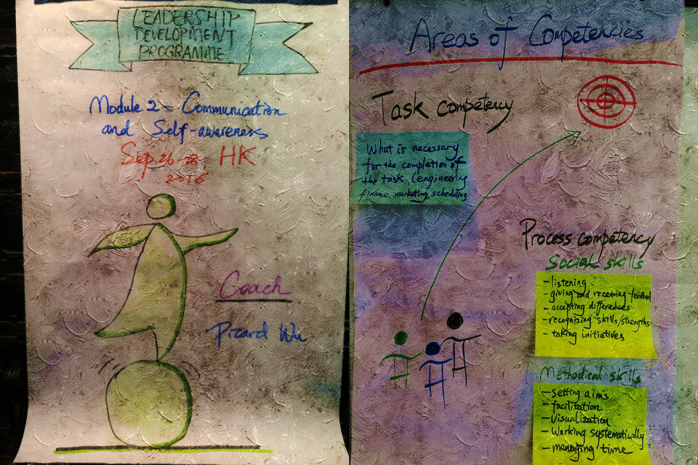 LEADERSHIP
DEVELOPMENT
PROGRAMME
Module 2 = Communication
and Self-awareness
Sep 26-28 HK
2016
Coach
Wu
Areas of Competencies
Task competency
What is necessary
for the completion of
the task (engineering
finance, marketing, scheduling
Process competency
Social skills
- listening
- giving and receiving feedback
- accepting differences
- recognizing skills/strengths
- taking initiatives
Methodical skills
- Setting aims
- facilitation
- Visualization
- Working systematically
- managing time